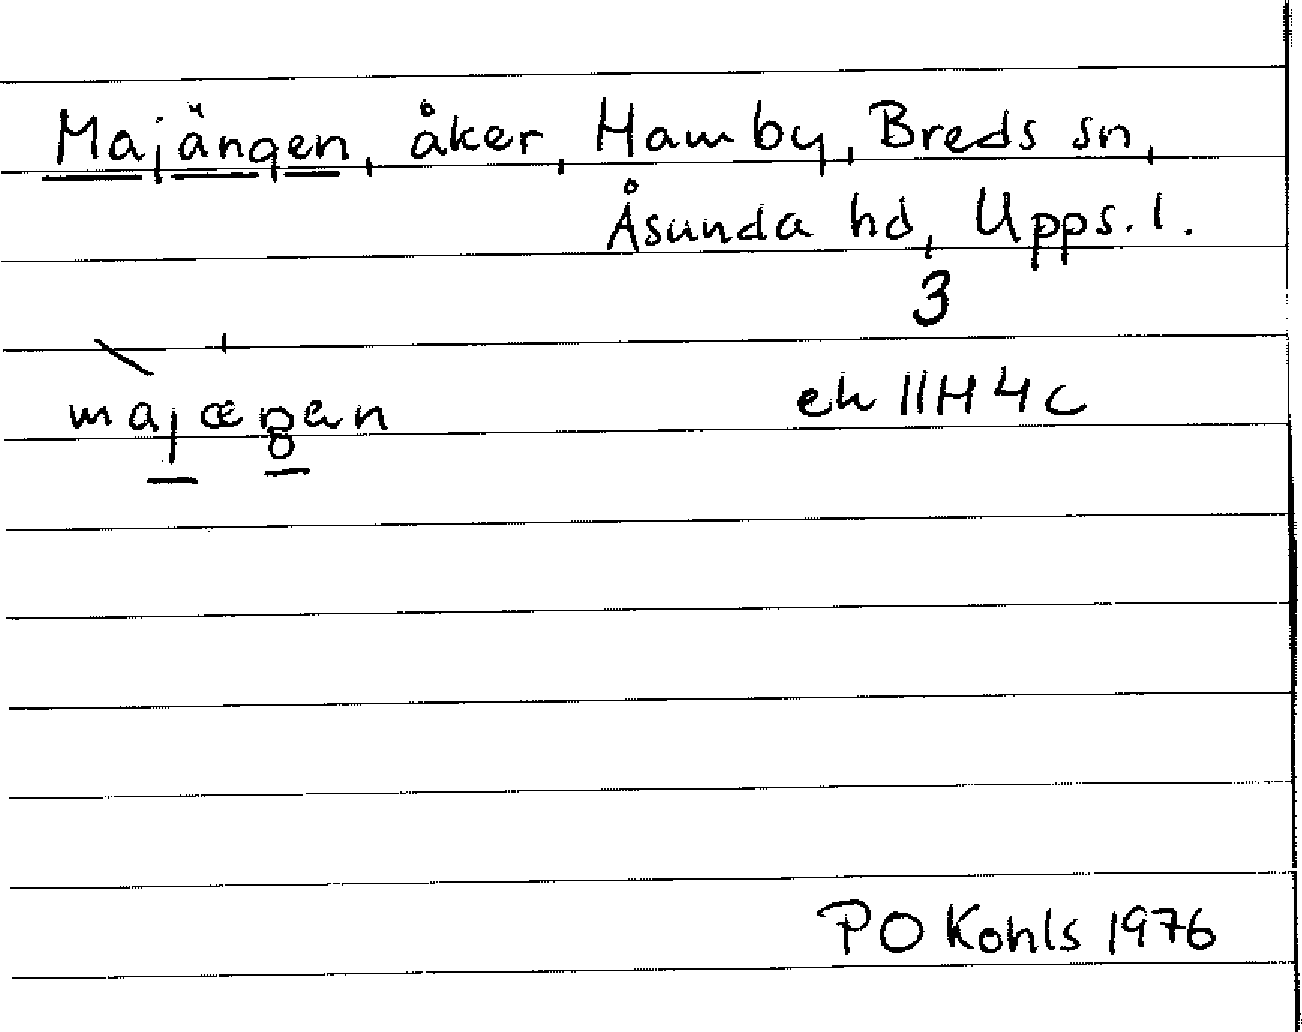 Majängen, åker Hamby, Breds sn,
Åsunda hd, Upps. l.
3
majæŋan
ek 11H 4c
PO Kohls 1976